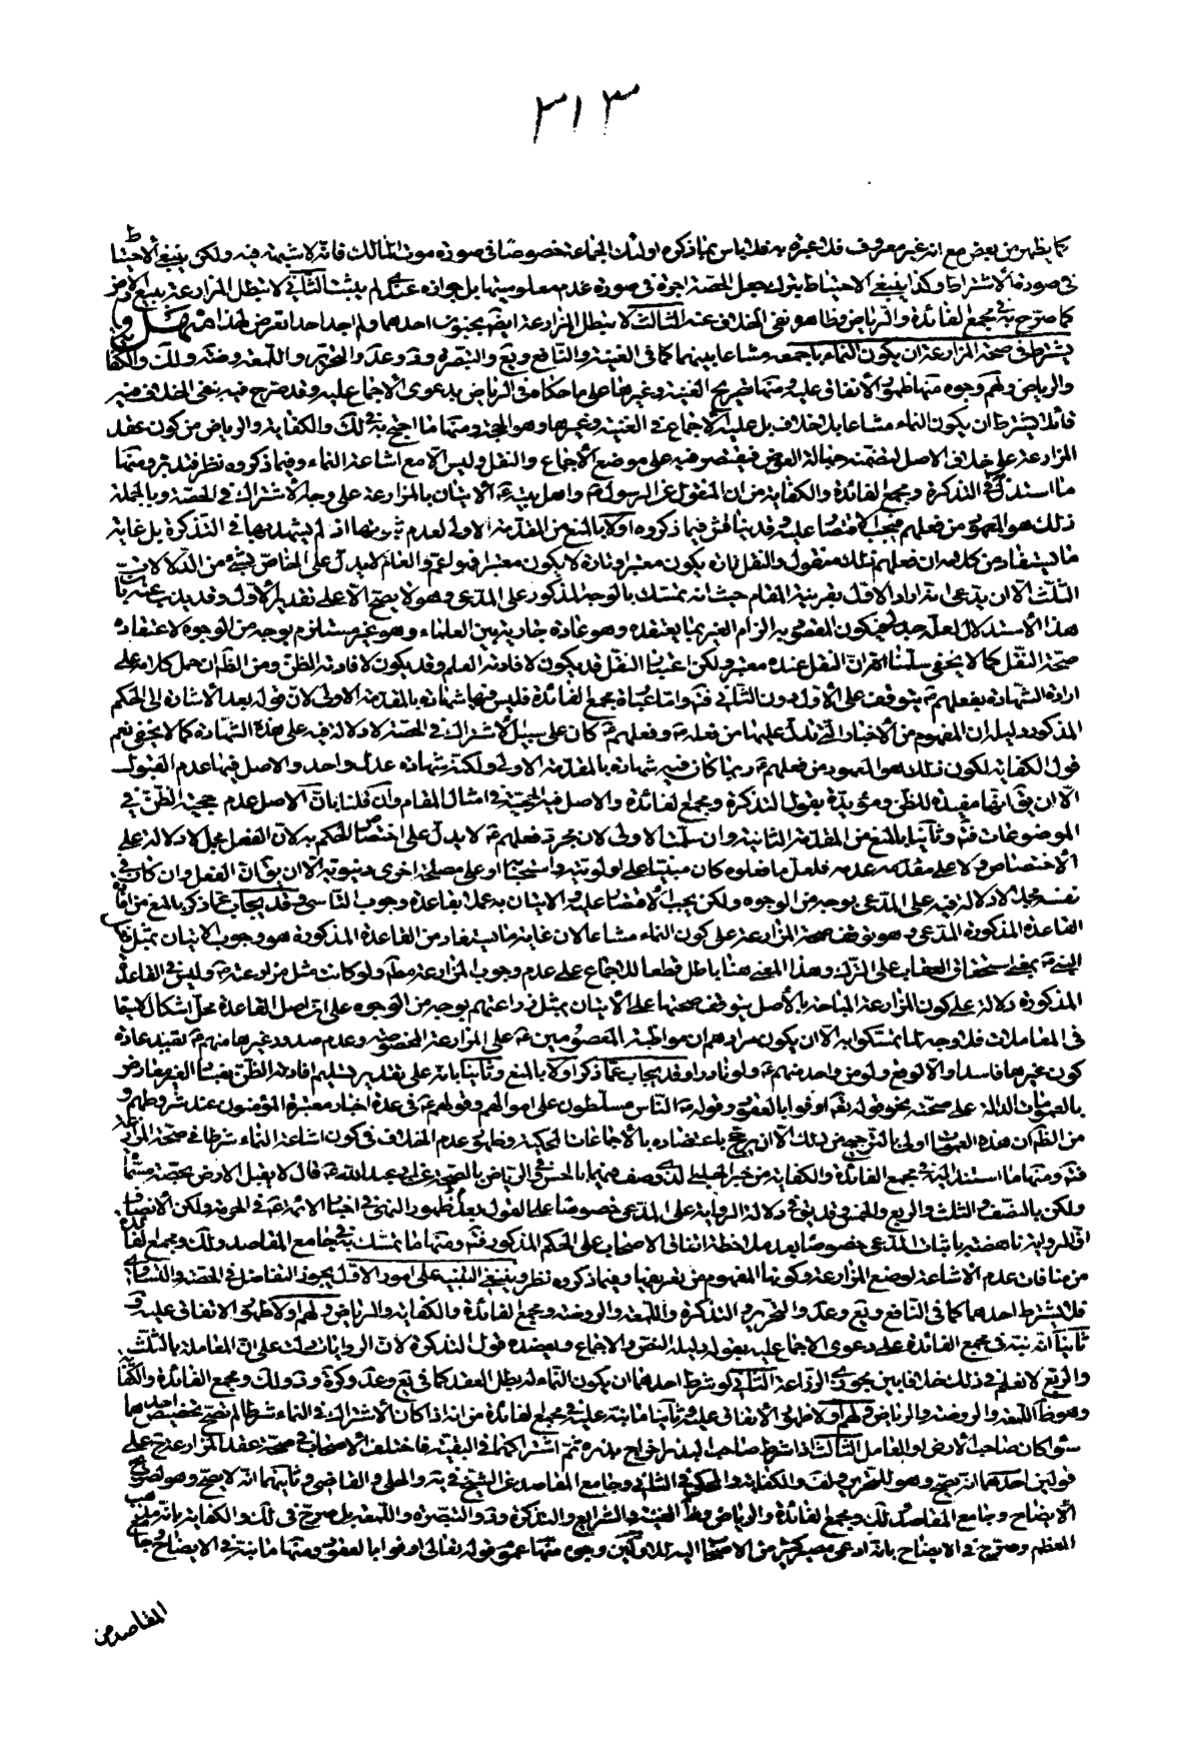 ٣١٣
كما يظهر من بعض مع انه غير معروف فلا عبرة به فلا باس بما ذكره اولئك الجماعة خصوصا فى صورة موت المالك فانه لا شبهة فيه ولكن ينبغى الاحتياط
فى صورة الاشتراط وكذا ينبغى الاحتياط بترك جعل الحصة اجرة فى صورة عدم معلوميتها بل جوازه عندى لم يثبت الثانى لا تبطل المزارعة ببيع الارض
كما صرح به فى مجمع الفائدة والرياض وظاهره نفى الخلاف عنه الثالث لا تبطل المزارعة ايضا بجنون احدهما ولم اجد احدا تعرض لهذا منهل
يشترط فى صحة المزارعة ان يكون النماء باجمعه مشاعا بينهما كما فى الغنية والنافع ويع والتبصرة وعد والتحرير واللمعة وضه ولك والكفاية
والرياض ولهم وجوه منها ظهور الاتفاق عليه ومنها تصريح الغنية وغيرها على ما حكاه فى الرياض بدعوى الاجماع عليه وقد صرح فيه بنفى الخلاف فيه
قائلا يشترط ان يكون النماء مشاعا بلا خلاف بل عليه الاجماع فى الغنية وغيرها وهو الحجة ومنها ما احتج به فى لك والكفاية والرياض من كون عقد
المزارعة على خلاف الاصل لتضمنه جهالة العوض فيقتصر فيه على موضع الاجماع والنقل وليس الا مع اشاعة النماء وفيما ذكروه نظر فتدبر ومنها
ما استند اليه فى التذكرة ومجمع الفائدة والكفاية من ان المنقول عن الرسول ص واهل بيته ع الاتيان بالمزارعة على وجه الاشتراك فى الحصة وبالجملة
ذلك هو المعهود من فعلهم فيجب الاقتصار عليه وقد يناقش فيما ذكروه اولا بالمنع من المقدمة الاولى لعدم ثبوتها اذ لم يشهد بها فى التذكرة بل غاية
ما يستفاد من كلامه ان فعلهم ذلك منقول والنقل تارة يكون معتبرا وتارة لا يكون معتبرا فهو اعم والعام لا يدل على الخاص بشىء من الدلالات
الثلث الا ان يدعى انه اراد الاول بقرينة المقام حيث انه تمسك بالوجه المذكور على المدعى وهو لا يصح الا على تقدير الاول وقد يجاب عنه بان
هذا الاستدلال لعله جدلى فيكون المقصود به الزام الغير بما يعتقده وهو عادة جارية بين العلماء وهو غير مستلزم بوجه من الوجوه لاعتقاده
صحة النقل كما لا يخفى سلمنا ان النقل عنده معتبر ولكن اعتبار النقل قد يكون لافادته العلم وقد يكون لافادته الظن ومن الظاهر ان حمل كلامه على
ارادة الشهادة بفعلهم ع يتوقف على الاول دون الثانى فت واما عبارة مجمع الفائدة فليس فيها شهادة بالمقدمة الاولى لان قوله بعد الاشارة الى الحكم
المذكور دليله ان المفهوم من الاخبار التى تدل عليها من فعله ص وفعلهم ع كان على سبيل الاشتراك فى الحصة لا دلالة فيه على هذه الشهادة كما لا يخفى نعم
قول الكفاية لكون ذلك هو المعهود من فعلهم ع ربما كان فيه شهادة بالمقدمة الاولى ولكنه شهادة عدل واحد والاصل فيها عدم القبول
الا ان يق انها مفيدة للظن ومؤيدة بقول التذكرة ومجمع الفائدة والاصل فيه الحجية فى امثال المقام وان قلنا بان الاصل عدم حجية الظن فى
الموضوعات فت وثانيا بالمنع من المقدمة الثانية وان سلمنا الاولى لان مجرد فعلهم ع لا يدل على اختصاص الحكم به لان الفعل مجمل لا دلالة على
الاختصاص ولا على عدمه فلعل ما فعلوه كان مبنيا على اولويته واستحبابه او على مصلحة اخرى دنيوية الا ان يق ان الفعل وان كان فى
نفسه مجملا لا دلالة فيه على المدعى بوجه من الوجوه ولكن يجب الاقتصار عليه والاتيان به عملا بقاعدة وجوب التاسى وقد يجاب عما ذكر بالمنع من افادة
القاعدة المذكورة المدعى وهو توقف صحة المزارعة على كون النماء مشاعا لان غاية ما يستفاد من القاعدة المذكورة هو وجوب الاتيان بمثل فعل
النبى ص بمعنى استحقاق العقاب على الترك وهذا المعنى هنا باطل قطعا للاجماع على عدم وجوب المزارعة مط ولو كانت مثل مزارعته ص وليس فى القاعدة
المذكورة دلالة على كون المزارعة المباحة بالاصل يتوقف صحتها على الاتيان بمثل مزارعتهم بوجه من الوجوه على ان اصل القاعدة محل اشكال لا سيما
فى المعاملات فلا وجه للتمسك بها الا ان يكون مرادهم ان مواظبة المعصومين ع على المزارعة المخصوصة وعدم صدور غيرها منهم ع تفيد عادة
كون غيرها فاسدا والا لوقع ولو من واحد منهم ع ولو نادرا وقد يجاب عما ذكر اولا بالمنع وثانيا بانه على تقدير تسليم افادته الظن بفساد الغير معارض
بالعمومات الدالة على صحته نحو قوله تع اوفوا بالعقود وقوله ص الناس مسلطون على اموالهم وقولهم ع فى عدة اخبار معتبرة المؤمنون عند شروطهم و
من الظاهر ان هذه العمومات اولى بالترجيح من ذلك الا ان يرجح باعتضاده بالاجماعات المحكية وظهور عدم الخلاف فى كون اشاعة النماء شرطا فى صحة المزارعة
فت ومنها ما استند اليه فى مجمع الفائدة والكفاية من خبر الحلبى الذى وصف فيهما بالحسن وفى الرياض بالصحة عن ابى عبد الله ع قال لا يقبل الارض بحنطة مسماة
ولكن بالنصف والثلث والربع والخمس وقد يتوقف فى دلالة الرواية على المدعى خصوصا على القول بعدم ظهور النهى فى اخبار الائمة ع فى الحرمة ولكن الانصاف
ان الرواية ناهضة باثبات المدعى خصوصا بعد ملاحظة اتفاق الاصحاب على الحكم المذكور فت ومنها ما تمسك به فى جامع المقاصد ولك ومجمع الفائدة
من منافات عدم الاشاعة لوضع المزارعة وكونها المفهوم من تعريفها وفيما ذكروه نظر وينبغى التنبيه على امور الاول يجوز التفاضل فى الحصة والتساوى
فلا يشترط احدهما كما فى النافع ويع وعد والتحرير والتذكرة واللمعة والروضة ومجمع الفائدة والكفاية والرياض ولهم اولا ظهور الاتفاق عليه و
ثانيا انه نبه فى مجمع الفائدة على دعوى الاجماع عليه بقوله دليله النص والاجماع ويعضده قول التذكرة لان الروايات دلت على ان المعاملة بالثلث
والربع لا نعلم فى ذلك خلافا بين مجوزى الزراعة الثانى لو شرط احدهما ان يكون النماء له بطل العقد كما فى يع وعد وكره ولك ومجمع الفائدة والكفاية
وهو ظاهر اللمعة والروضة والرياض ولهم اولا ظهور الاتفاق عليه وثانيا ما نبه عليه فى مجمع الفائدة من انه اذا كان الاشتراك فى النماء شرطا لم يصح تخصيص احدهما
سواء كان صاحب الارض او العامل الثالث اذا شرط صاحب البذر اخراج بذره ثم اشتراكهما فى البقية فاختلف الاصحاب فى صحة عقد المزارعة ح على
قولين احدهما انه يصح وهو للتحرير ولف والكفاية والمحكى فى الثانى وجامع المقاصد عن الشيخ فى يه والحلى والقاضى وثانيهما انه لا يصح وهو لصريح
الايضاح وجامع المقاصد ولك ومجمع الفائدة والرياض وظاهر الغنية والشرايع والتذكرة وعد والتبصرة واللمعة بل صرح فى لك والكفاية بانه مذهب
المعظم وصرح فى الايضاح بانه ادعى مصير كثير من الاصحاب اليه للاولين وجوه منها عموم قوله تعالى اوفوا بالعقود ومنها ما نبه فى الايضاح وجامع
المقاصد من